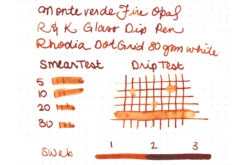 Monteverde Fire Opal
R & K Glass Dip Pen
Rhodia Dot Grid 80 gsm white
Smear Test Drip Test
5
10
20
30
Swab 1 2 3